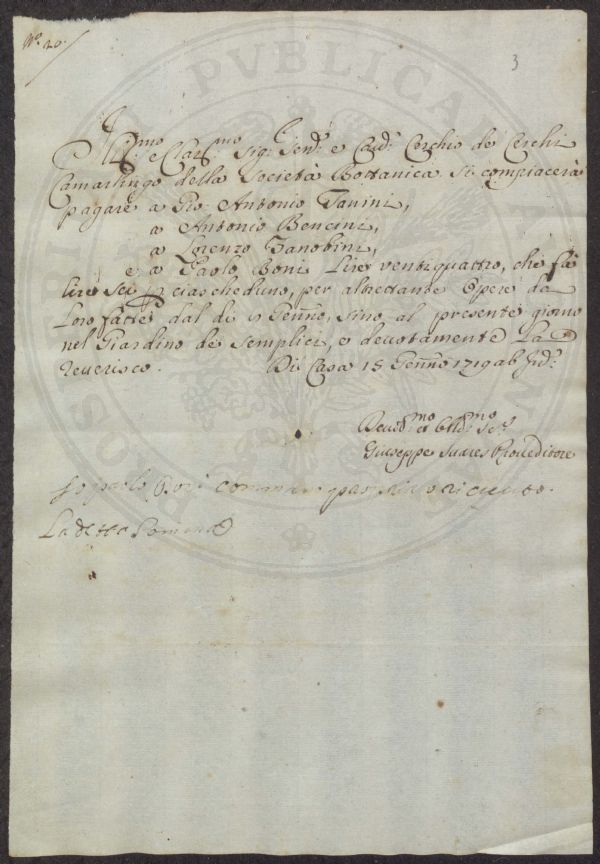 N.º 20.
3
Ill.mo e Clar.mo Sig.r Sen.e e Cav.e Cerchio de Cerchi
Camarlingo della Società Bottanica si compiacerà
pagare a Gio. Antonio Tanini,
a Antonio Bencini,
a Lorenzo Zanobini,
e a Paolo Boni Lire ventiquattro, che fà
lire sei p ciascheduno, per altrettante Opere da
Loro fatte dal di 9 Genn.o, sino al presente giorno
nel Giardino de Semplici, e devotamente La
reverisco. Di Casa 15 Genn.o 1719 ab Inc.e
Devot.mo et Obb.mo Se.e
Giuseppe Suares Proveditore
Io paolo Boni mano propria o riceuto
La detta Somma